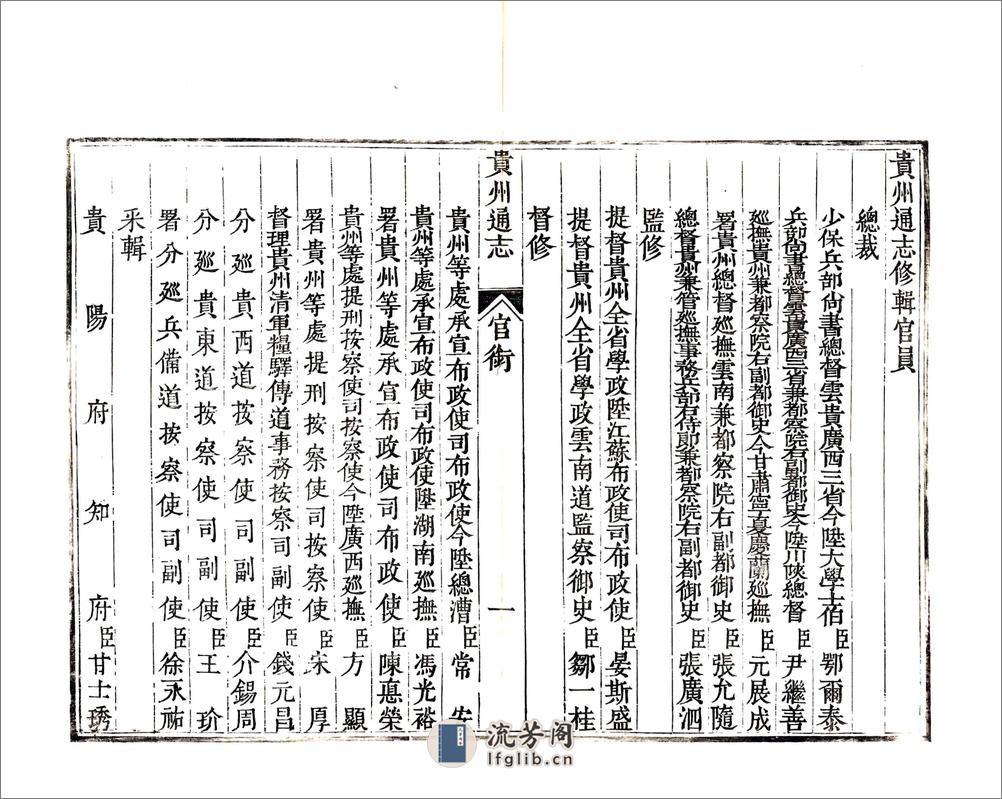 貴州通志修輯官員
總裁
少保兵部尙書總督雲貴廣西三省今陞大學士伯臣鄂爾泰
兵部尙書總督雲貴廣西三省兼都察院右副都御史今陞川陝總督臣尹繼善
廵撫貴州兼都察院右副都御史今甘肅寧夏慶蘭廵撫臣元展成
署貴州總督廵撫雲南兼都察院右副都御史臣張允隨
總督貴州兼管廵撫事務兵部右侍郎兼都察院右副都御史臣張廣泗
監修
提督貴州全省學政陞江蘇布政使司布政使臣晏斯盛
提督貴州全省學政雲南道監察御史臣鄒一桂
督修
貴州通志
官銜
一
貴州等處承宣布政使司布政使今陞總漕臣常安
貴州等處承宣布政使司布政使陞湖南廵撫臣馮光裕
署貴州等處承宣布政使司布政使臣陳惪榮
貴州等處提刑按察使司按察使今陞廣西廵撫臣方顯
署貴州等處提刑按察使司按察使臣宋厚
督理貴州清軍糧驛傳道事務按察司副使臣錢元昌
分廵貴西道按察使司副使臣介錫周
分廵貴東道按察使司副使臣王玠
署分廵兵備道按察使司副使臣徐永祐
采輯
貴陽府知府臣甘士琇
流芳阁
lfglib.cn